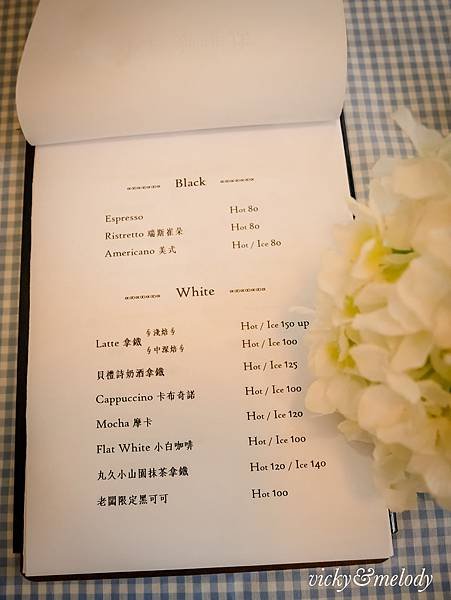 Black
Espresso Hot 80
Ristretto 瑞斯崔朵 Hot 80
Americano 美式 Hot / Ice 80
White
淺焙 Hot / Ice 150 up
Latte 拿鐵
中深焙 Hot / Ice 100
貝禮詩奶酒拿鐵 Hot / Ice 125
Cappuccino 卡布奇諾 Hot / Ice 100
Mocha 摩卡 Hot / Ice 120
Flat White 小白咖啡 Hot / Ice 100
丸久小山園抹茶拿鐵 Hot 120 / Ice 140
老闆限定黑可可 Hot 100
vicky&melody